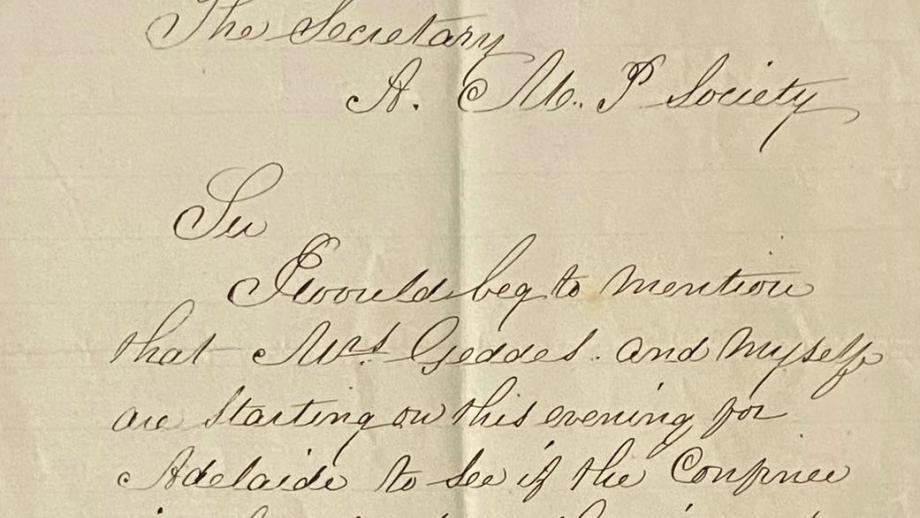 The Secretary
A. M. P Society
Sir
I would beg to mention
that Mrs Geddes. and Myself
are starting on this evening for
Adelaide to see if the